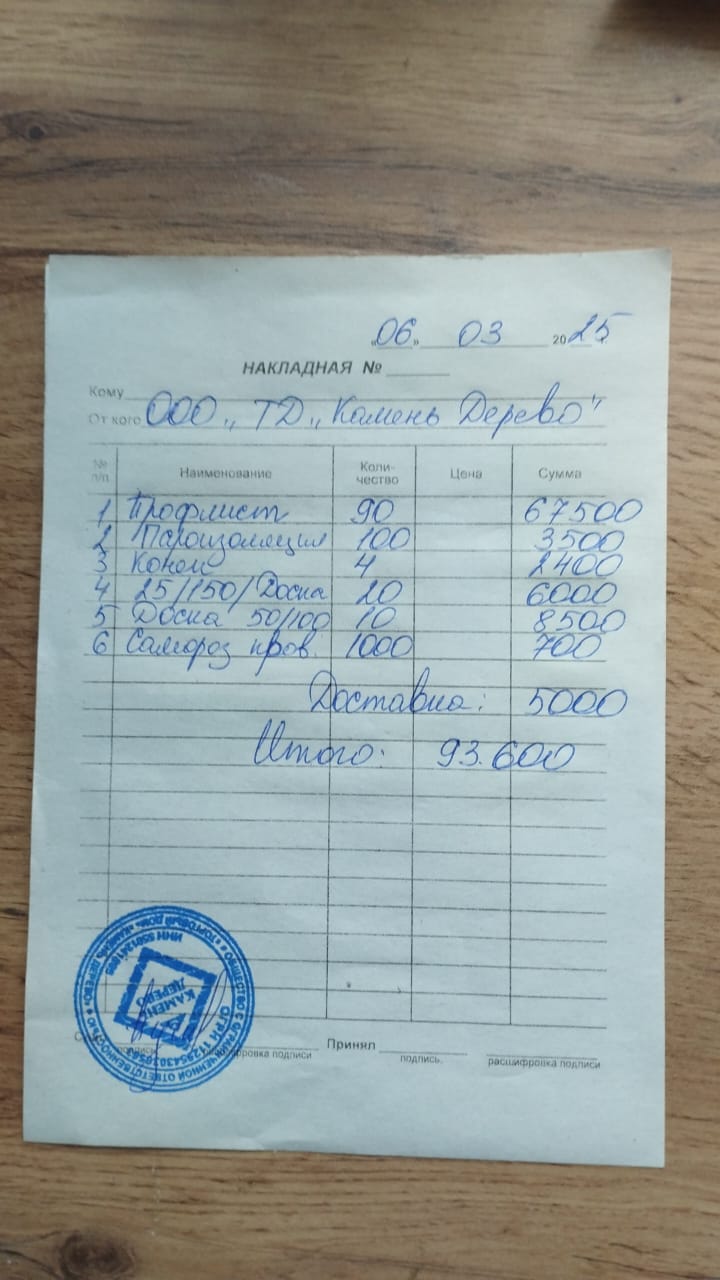 «06» 03 2025
НАКЛАДНАЯ №
Кому
От кого ООО „ТД „Камень Дерево"
№ п/п Наименование Коли-чество Цена Сумма
1 Профлист 90 67500
2 Пароизоляция 100 3500
3 Конек 4 2400
4 25/150/Доска 20 6000
5 Доска 50/100 10 8500
6 Самороз кров. 1000 700
Доставка: 5000
Итого: 93.600
ОБЩЕСТВО С ОГРАНИЧЕННОЙ ОТВЕТСТВЕННОСТЬЮ
«ТОРГОВЫЙ ДОМ «КАМЕНЬ ДЕРЕВО»
ИНН
ОГРН
КАМЕНЬ
ДЕРЕВО
подпись расшифровка подписи
Принял
подпись. расшифровка подписи